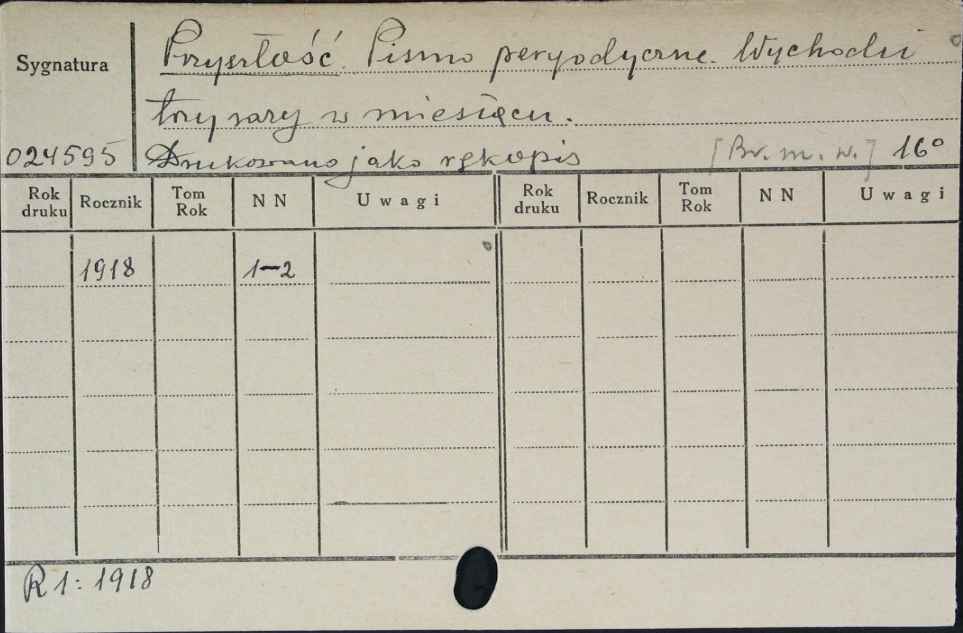 Sygnatura
Przyszłość. Pismo peryodyczne. Wychodzi
trzy razy w miesiącu.
024595 Drukowano jako rękopis [Br. m. w.] 16°
Rok druku Rocznik Tom Rok NN Uwagi Rok druku Rocznik Tom Rok NN Uwagi
1918 1-2
R 1: 1918